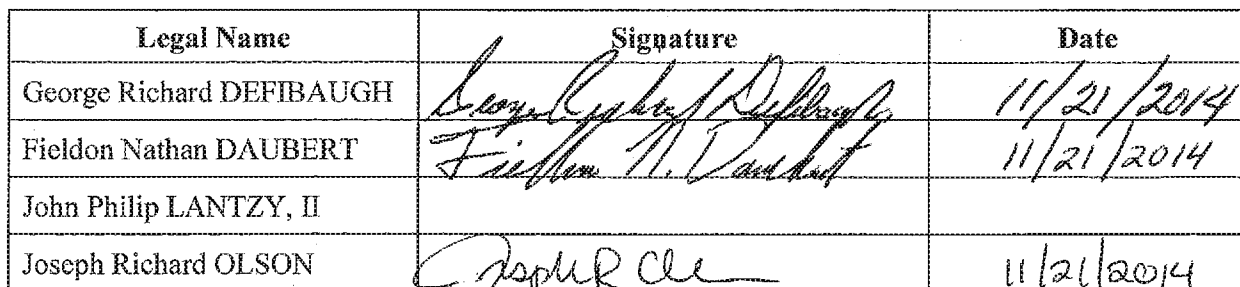 Legal Name Signature Date
George Richard DEFIBAUGH George Richard Defibaugh 11/21/2014
Fieldon Nathan DAUBERT Fieldon N. Daubert 11/21/2014
John Philip LANTZY, II
Joseph Richard OLSON Joseph R Ols 11/21/2014